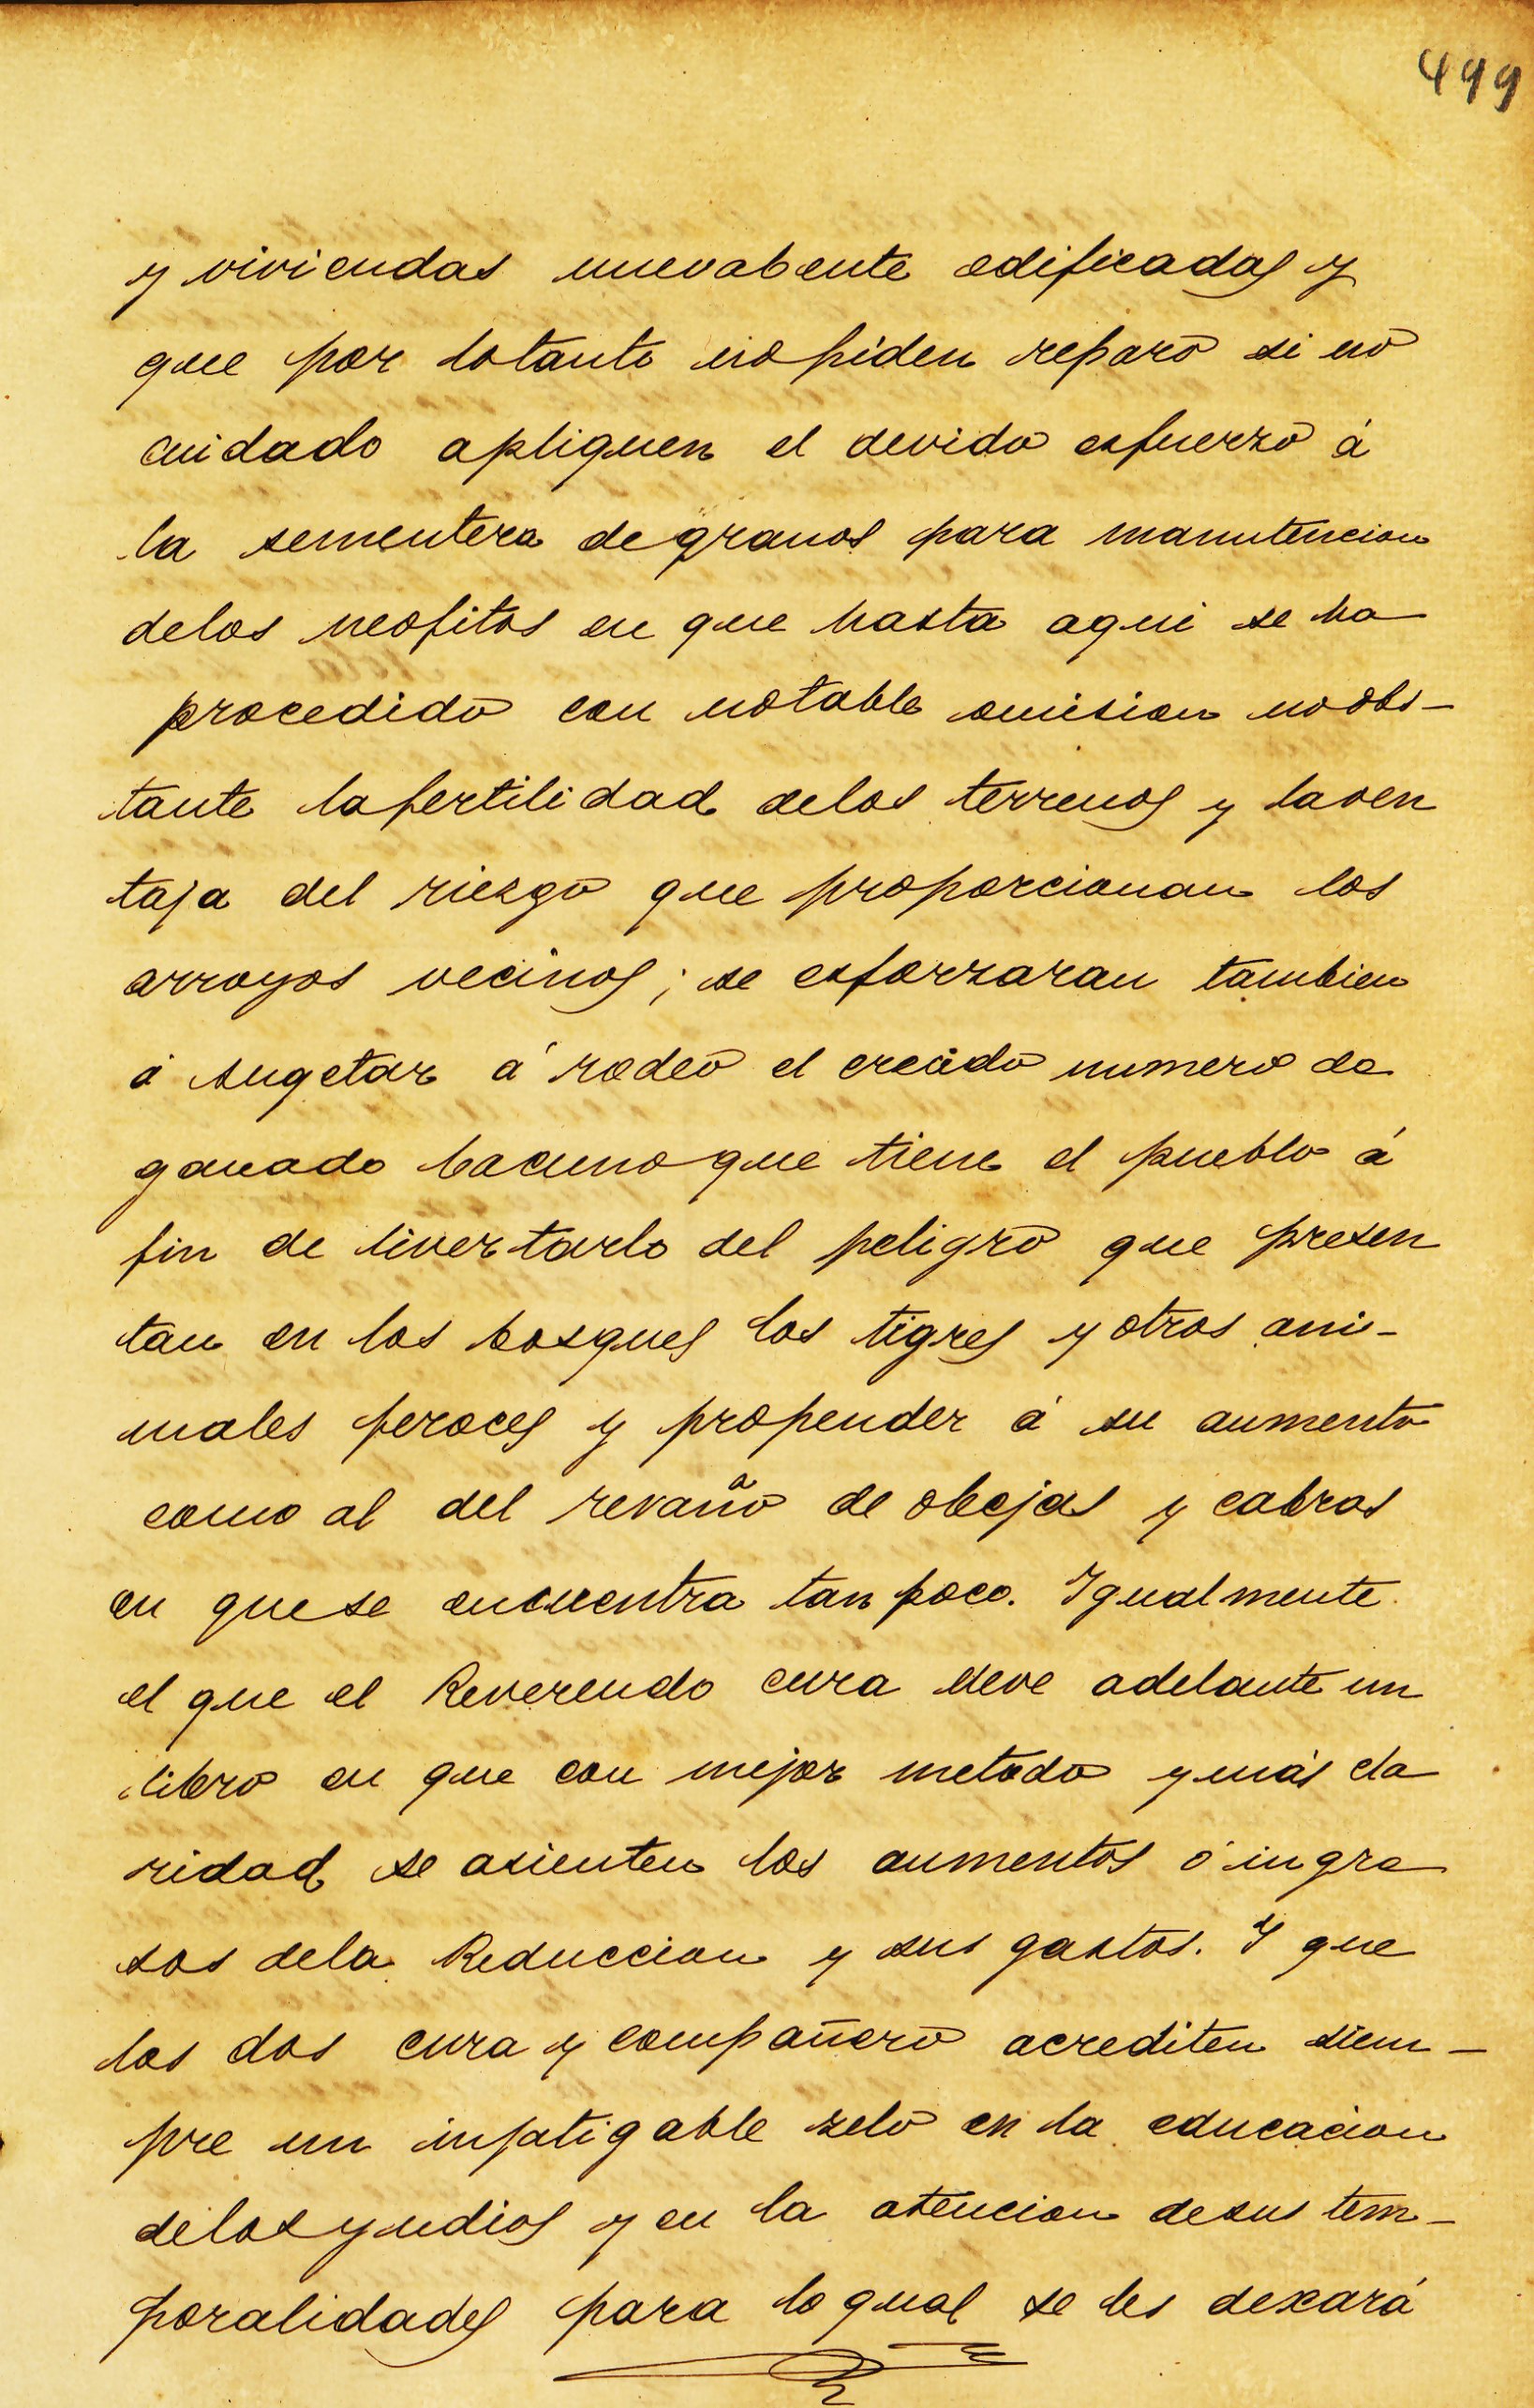 499
y viviendas nuevabente edificadas y
que por lotanto no piden reparo si no
cuidado apliquen el devido esfuerzo á
la sementera de granos para manutencion
delos neofitos en que hasta aqui se ha
procedido con notable omision noobs-
tante lafertilidad delos terrenos y laven
taja del riezgo que proporcionan los
arroyos vecinos; se esforzaran tambien
á sugetar á rodeo el crecido numero de
ganado bacuno que tiene el pueblo á
fin de livertarlo del peligro que presen
tan en los bosques los tigres y otros ani-
males feroces y propender á su aumento
como al del revaño de obejas y cabras
en quese encuentra tan poco. Igualmente
el que el Reverendo cura lleve adelante un
libro en que con mejor metodo y más cla
ridad se asienten los aumentos ó ingre
sos dela Reduccion y sus gastos. Y que
los dos cura y compañero acrediten siem-
pre un infatigable zelo en la educacion
delos yndios y en la atencion desus tem-
poralidades para lo qual se les dexará